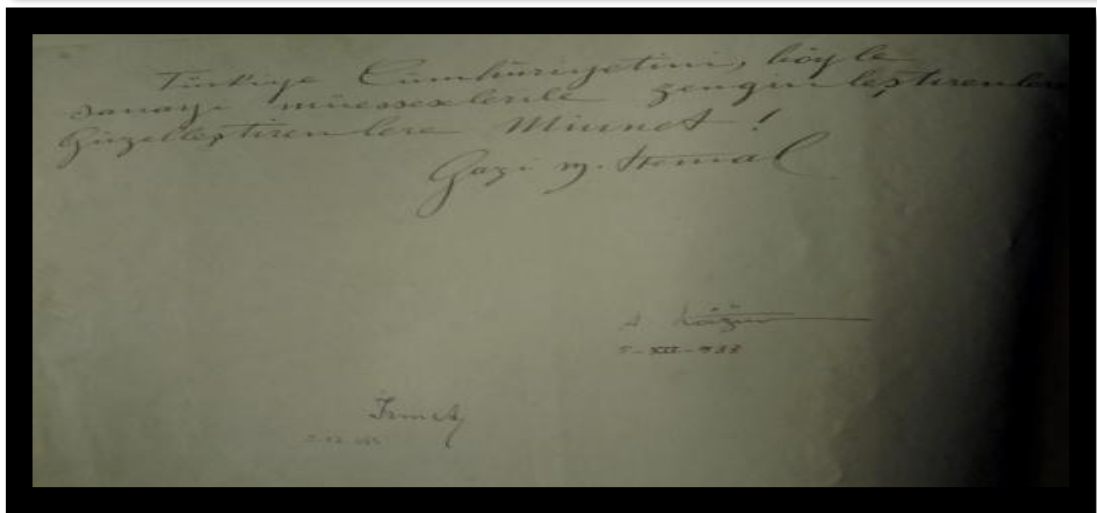 Türkiye Cümhuriyetini, böyle
sanayi müesseselerile zenginleştirenlere
Güzelleştirenlere Minnet!
Gazi M. Kemal
5-XII-933
İsmet